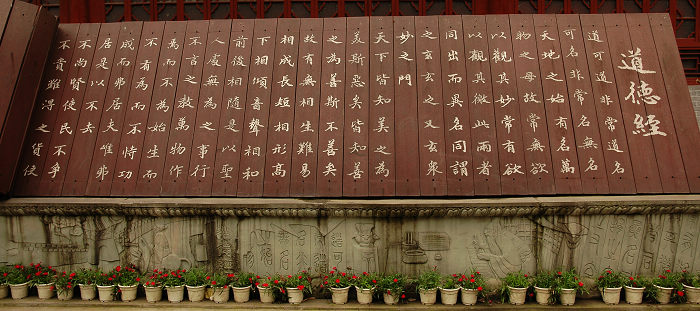 道德經
道可道非常道名
可名非常名無名
天地之始有名萬
物之母故常無欲
以觀其妙常有欲
以觀其徼此兩者
同出而異名同謂
之玄玄之又玄衆
妙之門
天下皆知美之為
美斯惡矣皆知善
之為善斯不善矣
故有無相生難易
相成長短相形高
下相傾音聲相和
前後相隨是以聖
人處無為之事行
不言之教萬物作
焉而不為始生而
不有為而不恃功
成而弗居夫唯弗
居是以不去
不尚賢使民不爭
不貴難得之貨